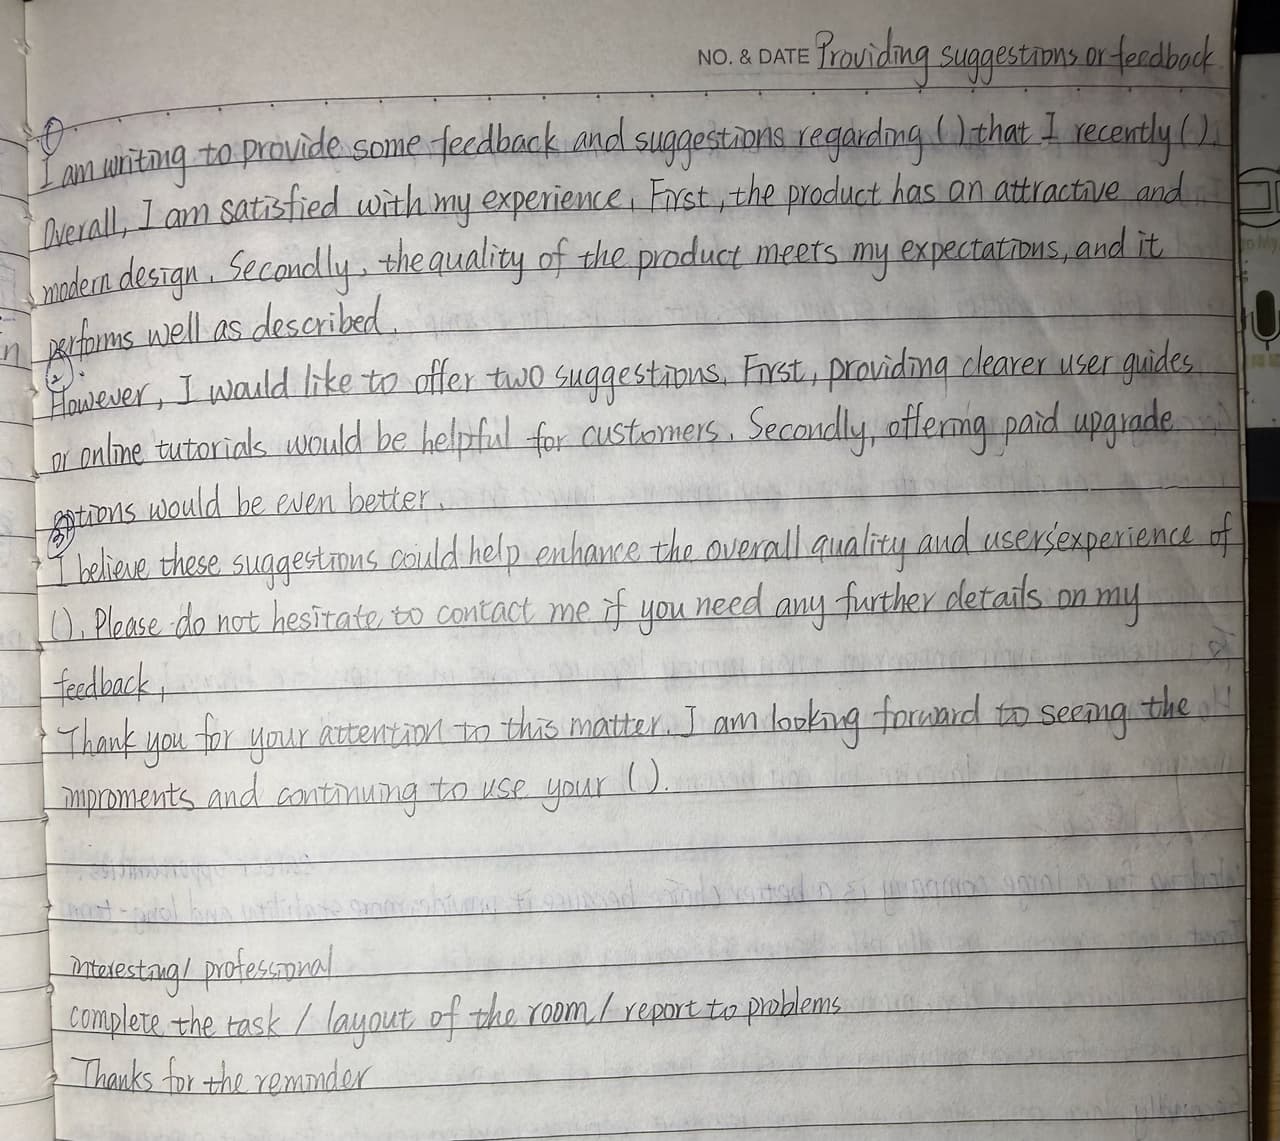 NO. & DATE Providing suggestions or feedback
①
I am writing to provide some feedback and suggestions regarding ( ) that I recently ( ).
Overall, I am satisfied with my experience. First, the product has an attractive and
modern design. Secondly, the quality of the product meets my expectations, and it
performs well as described.
②
However, I would like to offer two suggestions. First, providing clearer user guides
or online tutorials would be helpful for customers. Secondly, offering paid upgrade
options would be even better.
③
I believe these suggestions could help enhance the overall quality and users'experience of
( ). Please do not hesitate to contact me if you need any further details on my
feedback.
Thank you for your attention to this matter. I am looking forward to seeing the
improments and continuing to use your ( ).
interesting/ professional
complete the task / layout of the room / report to problems
Thanks for the reminder